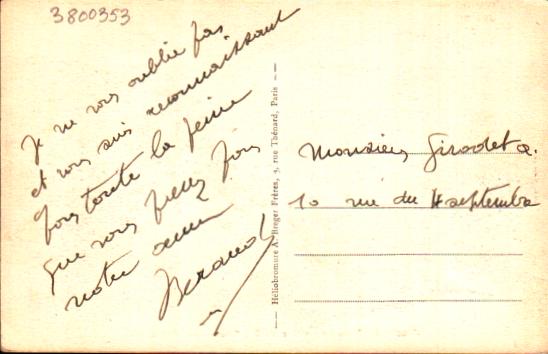 3800353
Je ne vous oublie pas
et vous suis reconnaissant
pour toute la peine
que vous prenez pour
notre
Héliobromure A. Breger Frères, 9, rue Thénard, Paris
Monsieur Girodet
10 rue du 4 septembre